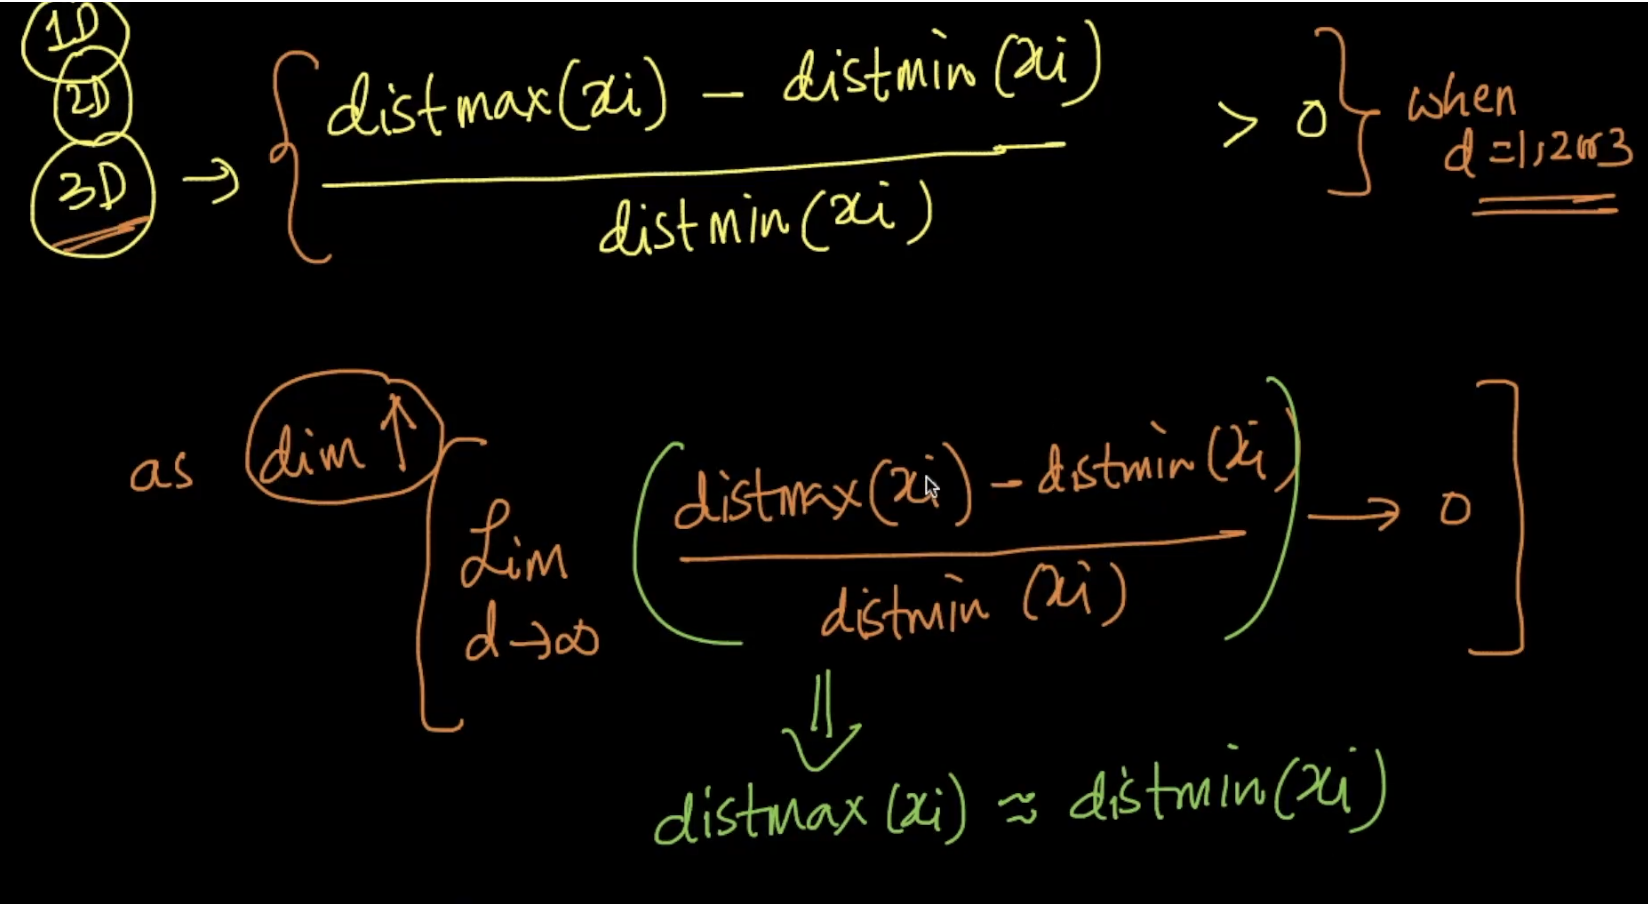 1D
2D
3D → { distmax(xi) − distmin(xi) / distmin(xi) > 0 } when d=1,2 or 3
as dim ↑
[ Lim d→∞ ( distmax(xi) − distmin(xi) / distmin(xi) ) → 0 ]
⇓
distmax(xi) ≈ distmin(xi)